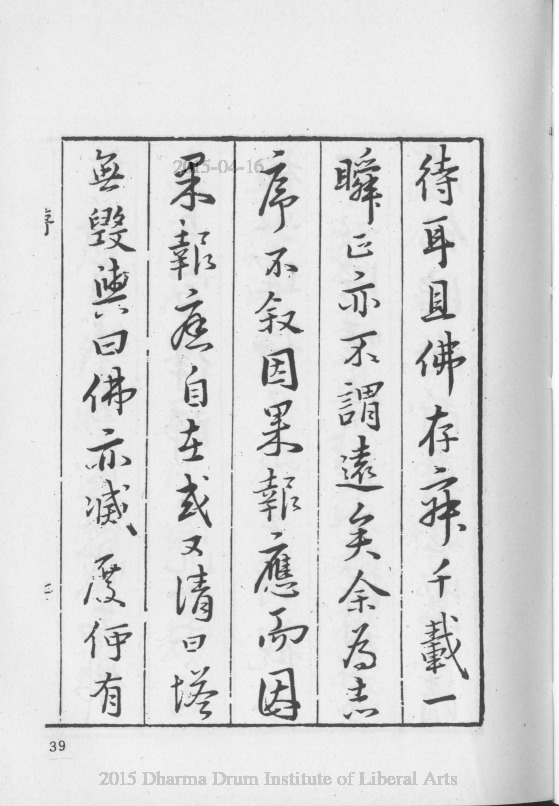 待耳且佛存千載一
瞬正亦不謂遠矣余為志
序不叙因果報應而因
果報應自在或又請曰塔
無毀與曰佛亦滅度何有
序
39
2015-04-16
2015 Dharma Drum Institute of Liberal Arts